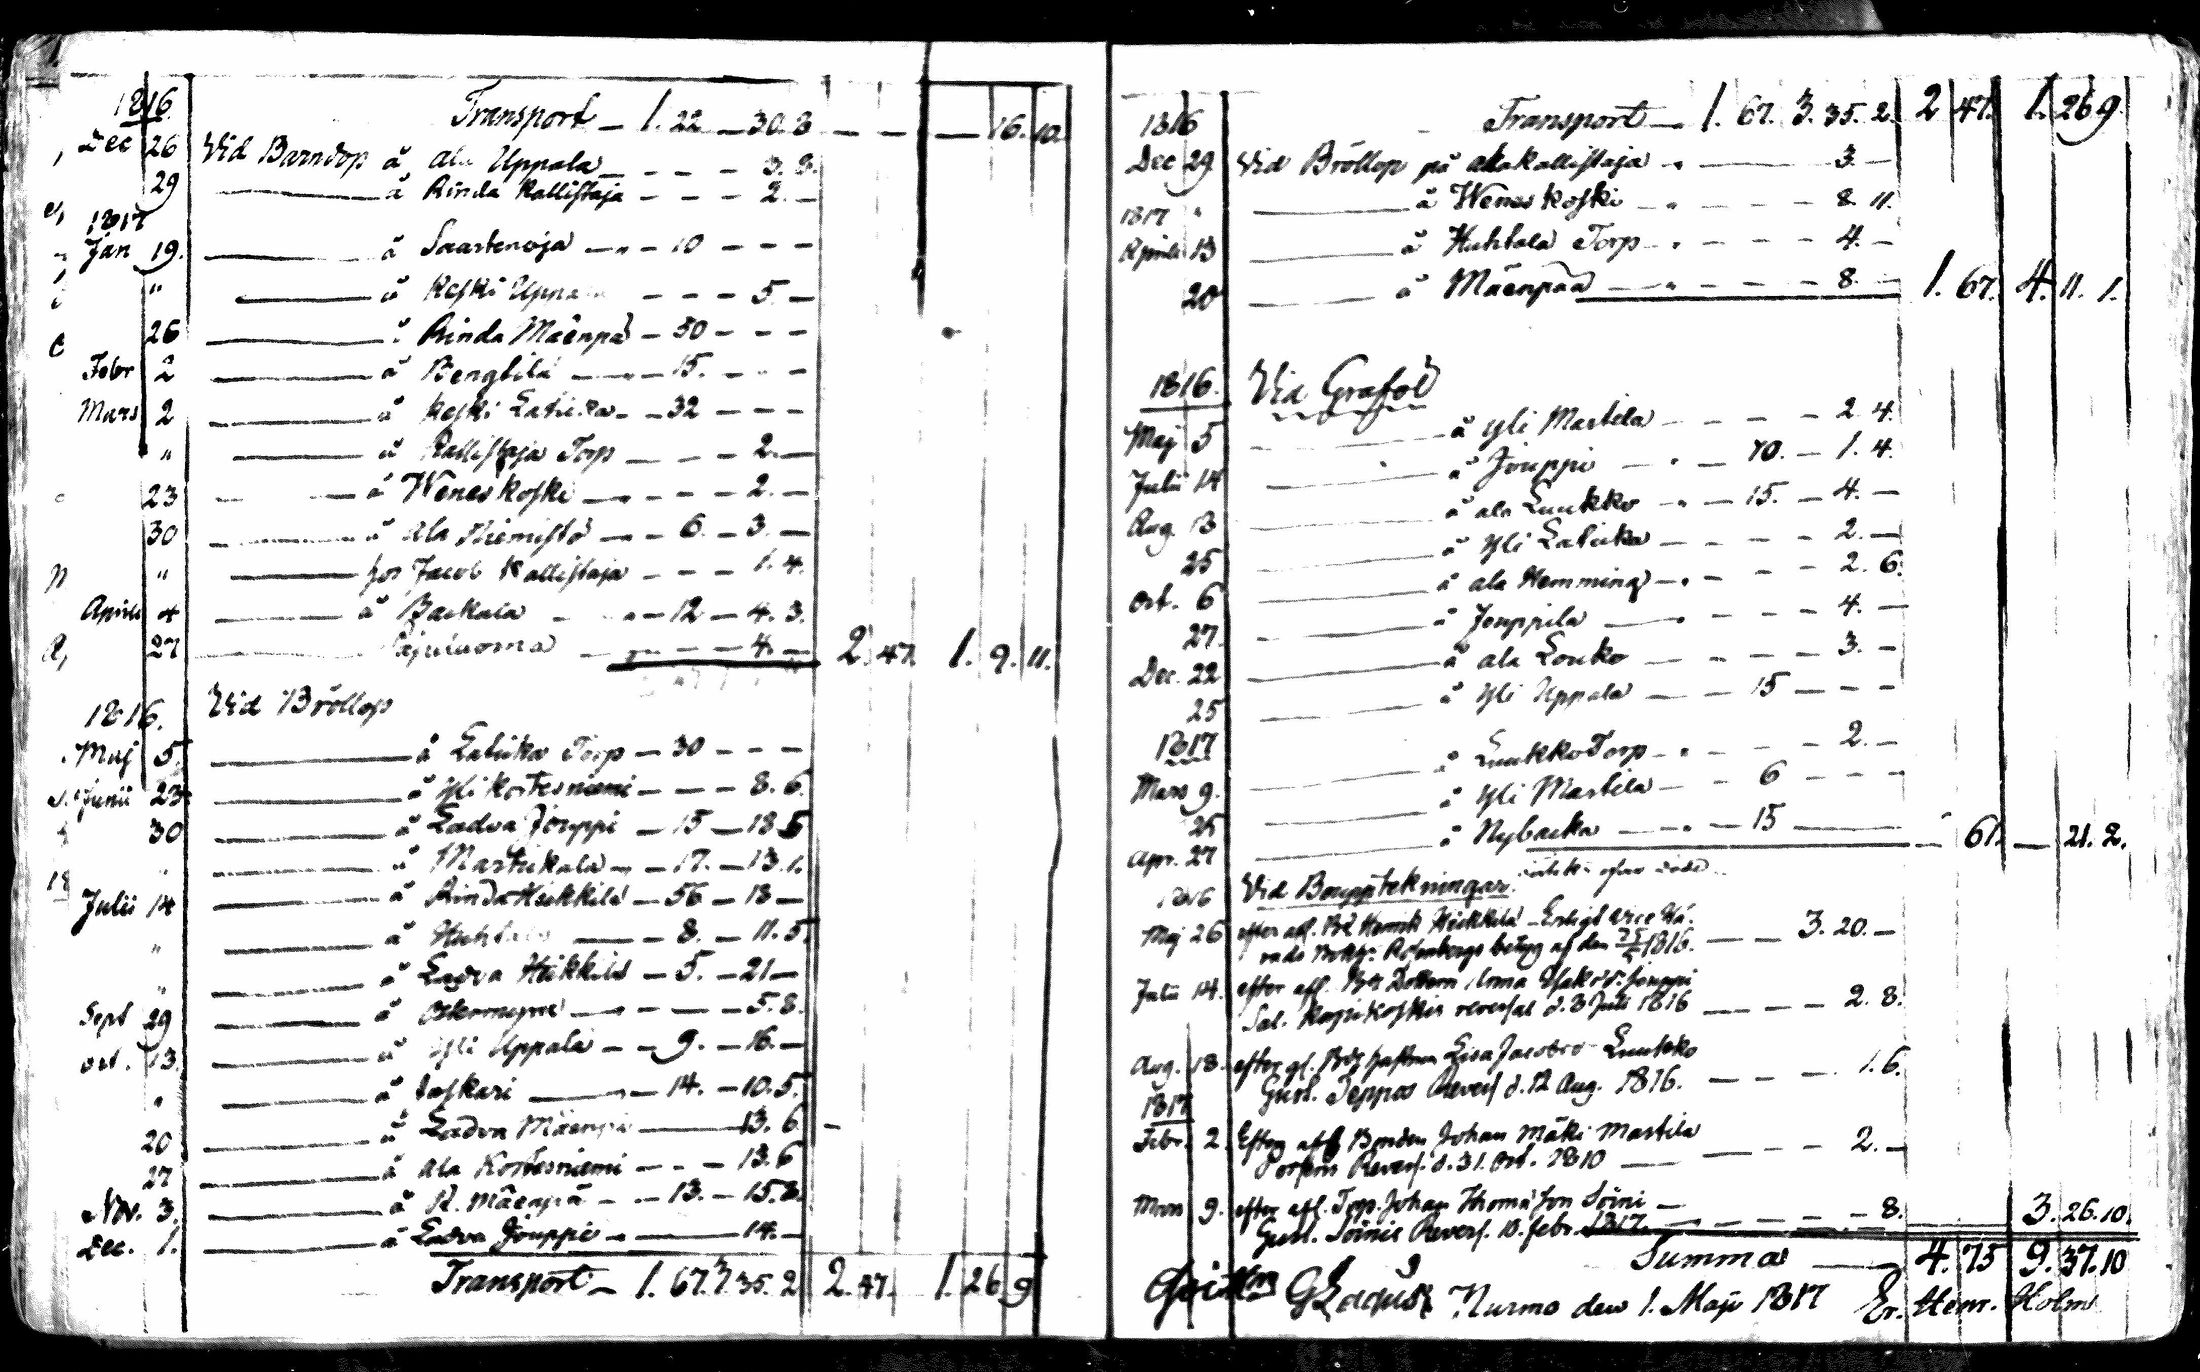 1816. Transport – 1. 22 – 30. 3 – – – 16. 10
Dec 26 Vid Barndop å ala Uppala – – – – 3. 3.
29 å Rinda Kallistaja – – – 2. –
1817
Jan 19. å Saartenoja – „ – 10 – – –
" å Keski Uppala – – – 5. –
26 å Rinda Mäenpä – 30 – – –
Febr 2 å Bengtilä – „ – 15. – – –
Mars 2 å Keski Latuka – – 32 – – –
" å Kallistaja Torp – – – 2. –
23 å Weneskoski – „ – – – 2. –
30 å ala Niemistö – „ – 6. – 3. –
" hos Jacob Kallistaja – – – 1. 4.
Aprill 4 å Backala – „ – 12 – 4. 3.
27 Pajuluoma – „ – – – 4. – 2. 47. 1. 9. 11.
1816. Vid Bröllop
Maj 5. å Latuka Torp – 30 – – –
Junii 23 å yli Kortesniemi – – – 8. 6.
30 å Ladva Jouppi – 15 – 18 5
" å Martikala – „ – 17. – 13. 1.
Julii 14 å Rinda Heikkilä – 56 – 13 –
" å Huhtala – 8. – 11. 5
" å Ladva Heikkilä – 5. – 21 –
Sept 29 å Östermyra – „ – – – 5. 8.
Oct. 13. å yli Uppala – – 9. – 16. –
" å Laskari – „ – 14. – 10. 5.
20 å Ladva Mäenpä – 13. 6
27 å ala Kortesniemi – – – 13. 6
Nov. 3. å R. Mäenpä – – 13. – 15. 8.
Dec. 1. å Ladva Jouppi – „ – 14. –
Transport – 1. 67. 3 35. 2 2. 47. 1 26 9
1816 Transport – 1. 67. 3. 35. 2. 2 47. 1. 26 9.
Dec 29. Vid Bröllop på alakallistaja – „ – 3. –
" å Weneskoski – „ – – – – 8. 11.
1817
Aprill 13 å Huhtala Torp – „ – – – 4. –
20 å Mäenpää – „ – – – – 8. – 1. 67. 4. 11. 1.
1816. Vid Graföl
Maj 5 å yli Martila – – – – 2. 4.
Julii 14 å Jouppi – „ – 70. – 1. 4.
Aug. 13 å ala Luukko – „ – 15. – 4. –
25 å yli Latuka – – – – 2. –
Oct. 6 å ala Hemming – „ – – – 2. 6.
27. å Jouppila – „ – – – 4. –
Dec. 22 å ala Louko – – – – 3. –
25 å yli Uppala – – 15 – – –
1817 å Luukko Torp – „ – – – 2. –
Mars 9. å yli Martila – – 6 – – –
25 å Nybacka – „ – 15
Apr. 27 – 61. – 21. 2.
1816 Vid Bouppteckningar
Maj 26 efter afl. Henrik Heikkilä – Enligt vice Hä-
rads Rosenbergs betyg af den 25/5 1816. – – 3. 20. –
Julii 14. efter afl. Jouppi
Sal. Kapikoskis reversal d. 3 Julii 1816 – – – 2. 8.
Aug. 18. efter afl. Lisa Jacobsd Luukko
Gust. Seppos Revers d. 12 Aug. 1816. – – – 1. 6.
1817
Febr. 2. Efter afl Bonden Johan Mäki Martila
Revers. d. 31. Oct. 1810 – – – 2. –
Mars 9. efter afl. Torp. Johan Thomasson Söini –
Gust. Söinis Revers. 10. febr. 1817 – – – – 8. 3. 26. 10.
Summa 4. 75 9. 37. 10
Nurmo den 1. Maji 1817 Er. Henr. Holm